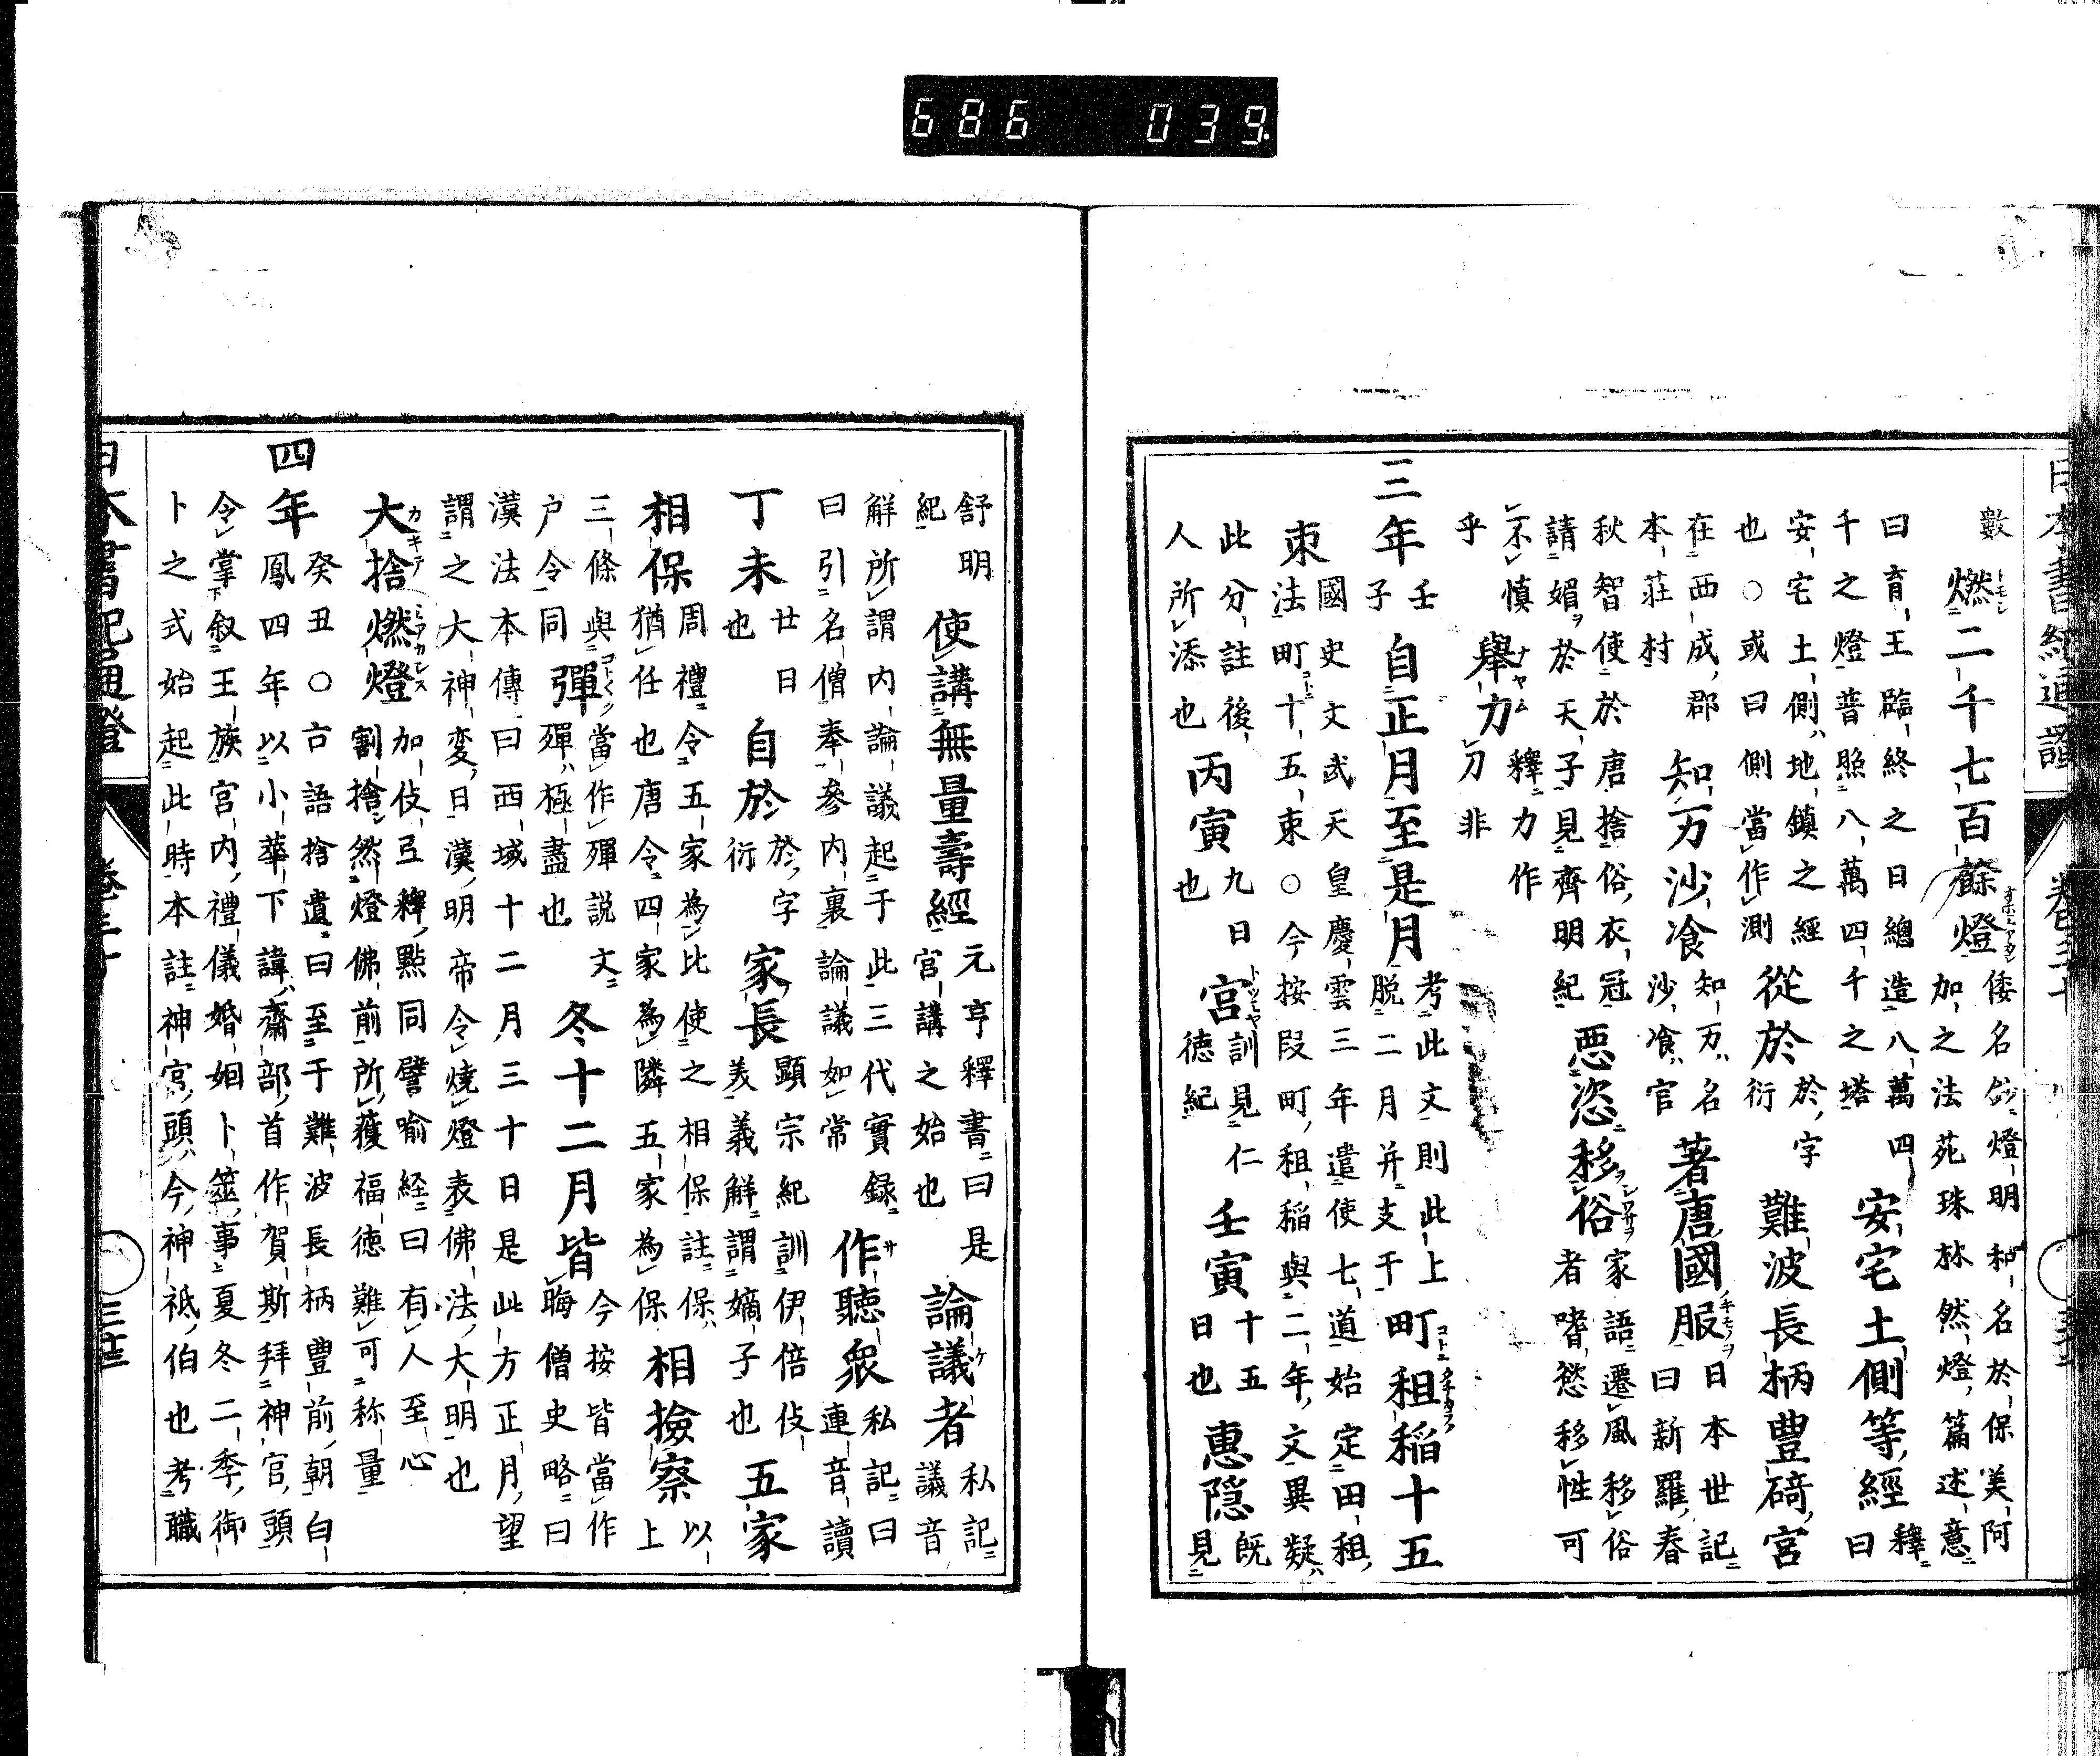 686 039
數
燃二千七百餘燈
倭名鈔燈明和名於保美阿
加之法苑珠林然燈篇述意
曰育王臨終之日總造八萬四
千之燈普照八萬四千之塔
安宅土側等經
釋曰
安宅土側地鎮之經
也○或曰側當作測
從於
於字衍
難波長柄豊碕宮
在西成郡
本荘村
知万沙飡
知万名
沙飡官
著唐國服
日本世記
曰新羅春
秋智使於唐捨俗衣冠
請媚於天子見齊明紀
悪恣移俗
家語遷風移俗
者嗜慾移性可
不慎
乎
舉力
釋力作
刀非
三年
壬子
自正月至是月
考此文則此上
脱二月并支干
町租稲十五
束
國史文武天皇慶雲三年遣使七道始定田租
法町十五束○今按段町租稲與二年文異疑
此分註後
人所添也
丙寅
九日也
宮
訓見仁
徳紀
壬寅
十五
日也
惠隠
既見
舒明
紀
使講無量壽經
元亨釋書曰是
宮講之始也
論議者
私記
議音
解所謂内論議起于此三代實録
曰引名僧奉參内裏論議如常
作聽衆
私記曰
連音讀
丁未
廿日
也
自於
於字
衍
家長
顯宗紀訓伊倍伎
美義解謂嫡子也
五家
相保
周禮令五家為比使之相保註保
猶任也唐令四家為隣五家為保
相撿察
以上
三條與
戸令同
彈
當作殫説文
殫極盡也
冬十二月皆
今按皆當作
晦僧史略曰
漢法本傳曰西域十二月三十日是此方正月望
謂之大神変日漢明帝令燒燈表佛法大明也
大捨燃燈
加伎弖釋點同譬喻経曰有人至心
割捨然燈佛前所獲福徳難可称量
四年
癸丑○古語拾遺曰至于難波長柄豊前朝白
鳳四年以小華下諱齋部首作賀斯拜神官頭
令掌叙王族宮内禮儀婚姻卜筮事夏冬二季御
卜之式始起此時本註神宮頭今神祗伯也考職
日本書紀通證
卷三十
三十三